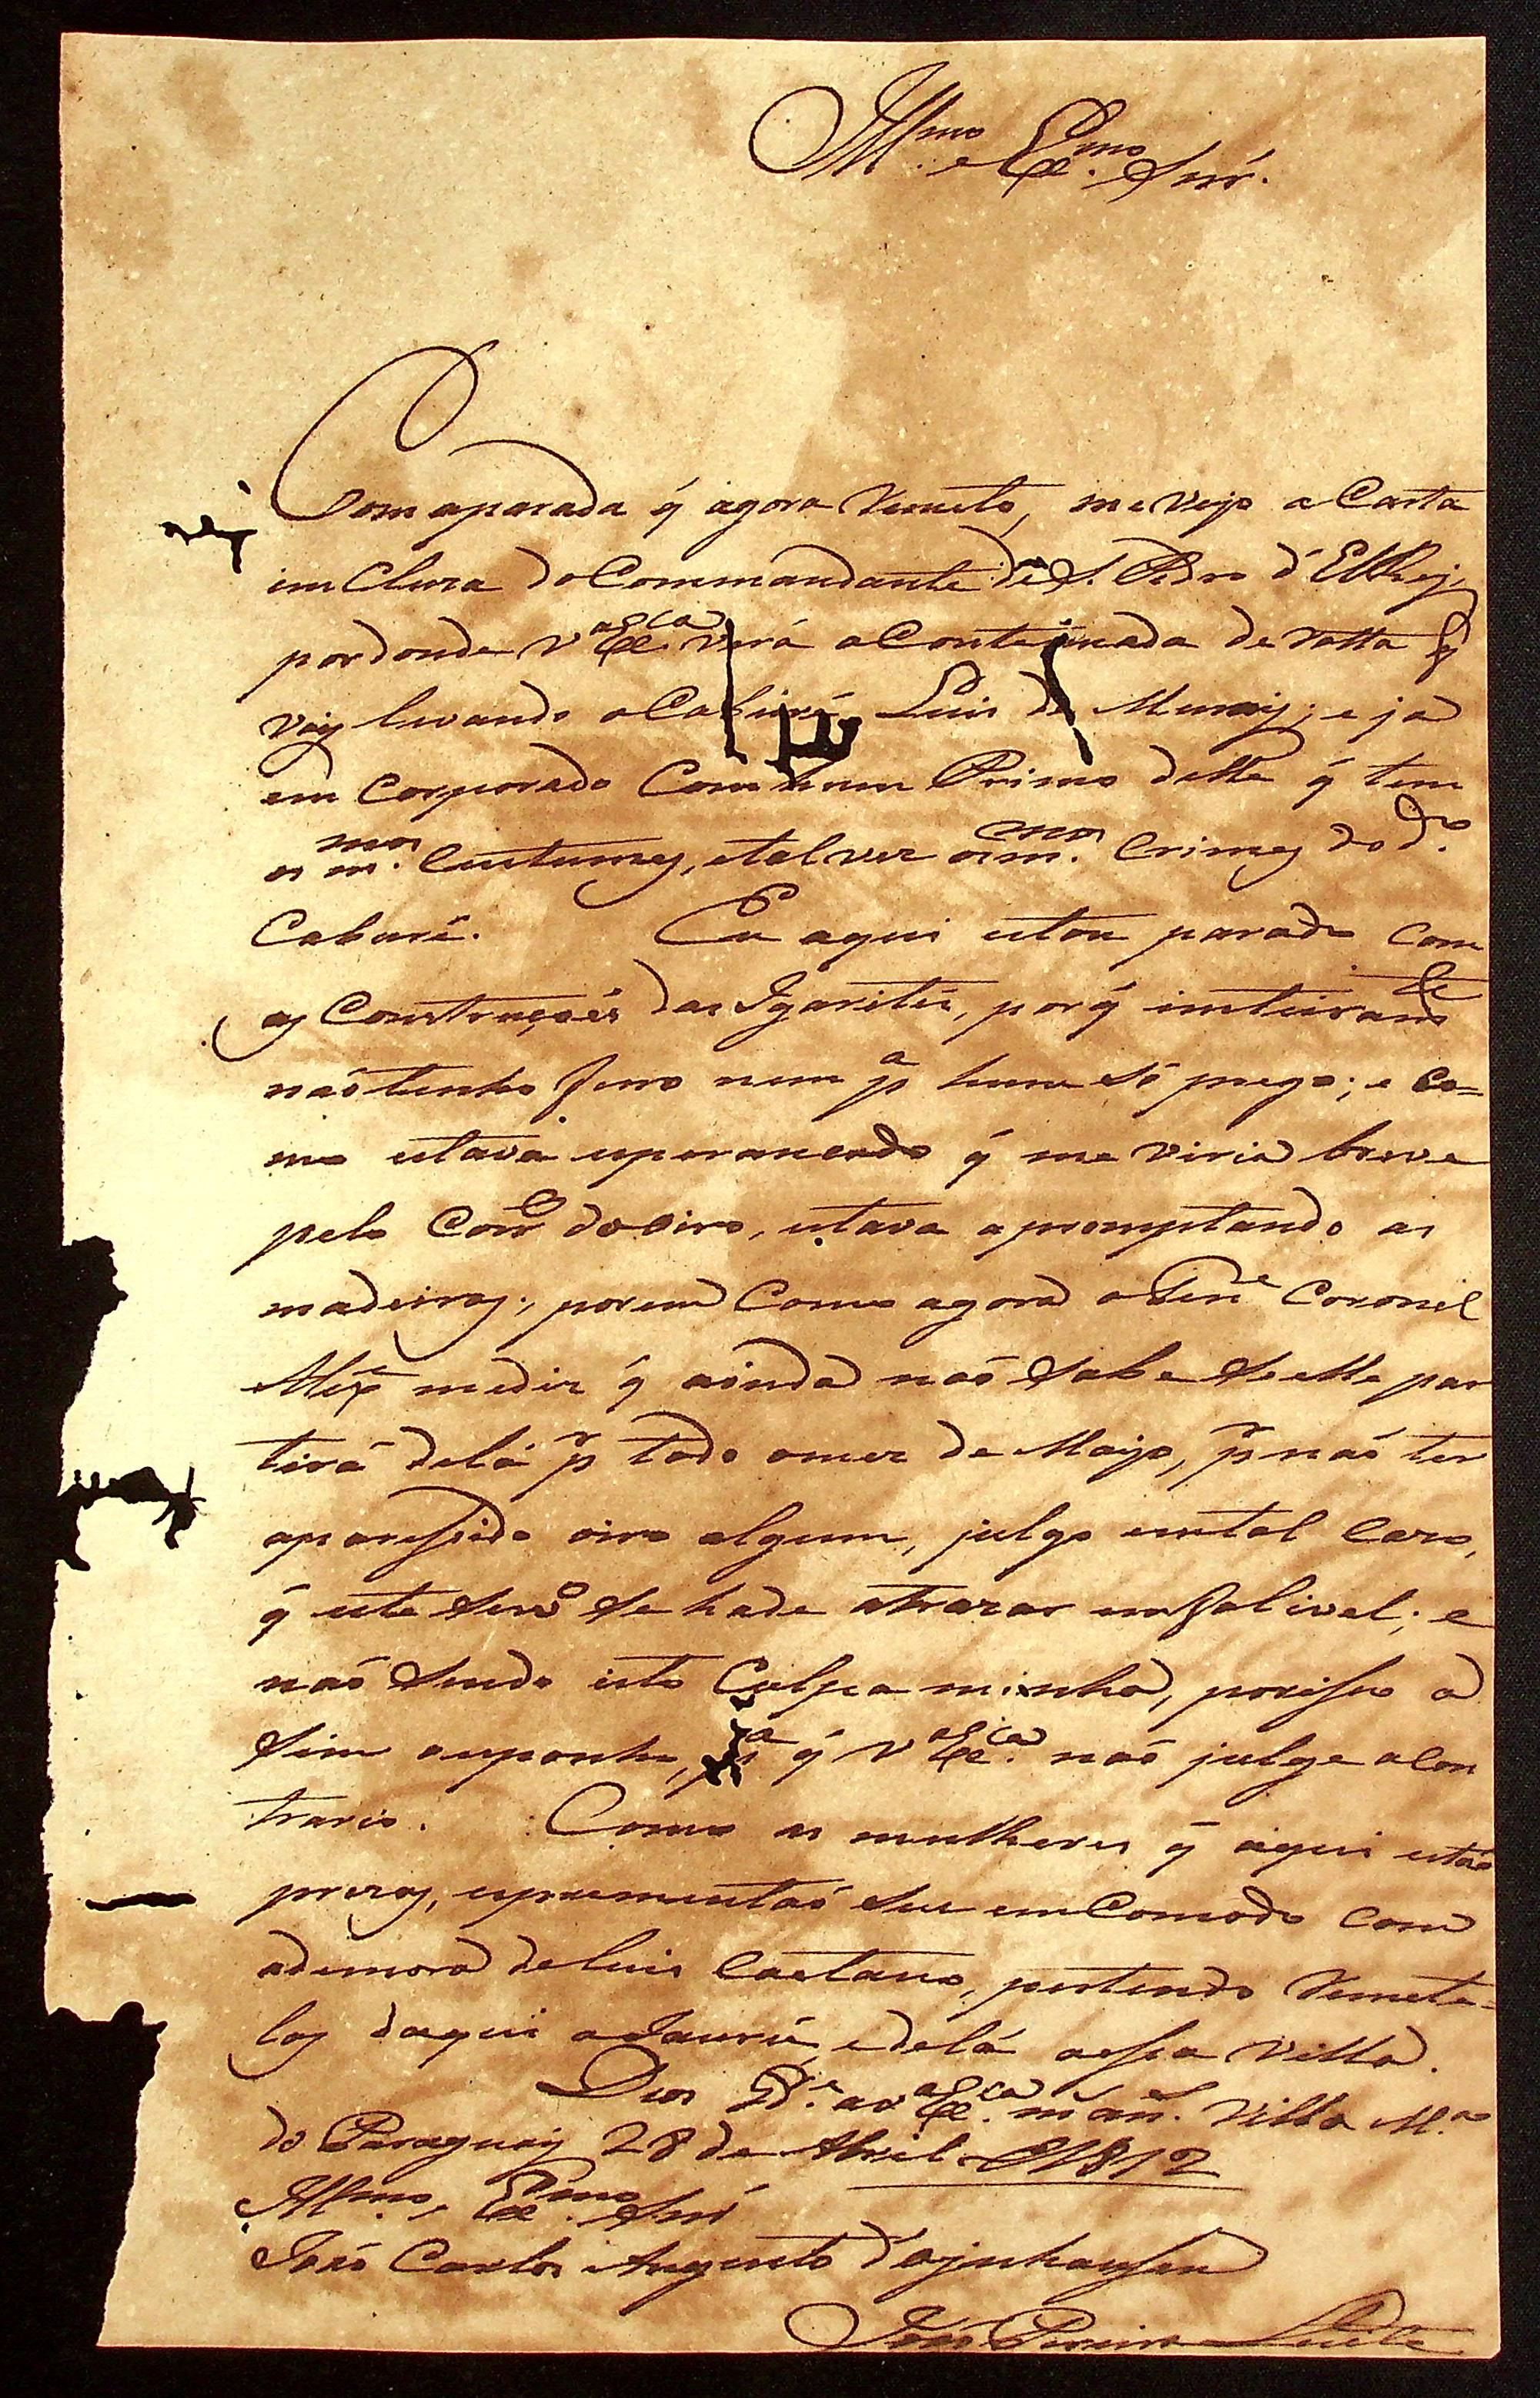 Ill.mo e Ex.mo Snr.
Com aparada q̃ agora Remeto, me veyo a Carta
incluza do Commandante de S. Pedro d'ElRey,
pordonde V Ex.ca verá a Continuada derrotta q̃
vay levando o Caburé Luis de Moraiz; e ja
em corporado Com hum Primo delle q̃ tem
os m.mos Custumes, etalvez os m.mos Crimes do d.o
Caburé. Eu aqui estou parado com
as Construçoẽs das Igarités, porq̃ inteiram.te
naõ tenho ferro nem p.a hum só prego; e Co=
mo estava esperancado q̃ me viria breve
pelo Corr.o do oiro, estava apromptando as
madeiras; porem Como agora o Ten.e Coronel
mediz q̃ ainda naõ sabe se elle par
tirá delá p.r todo o mez de Mayo, p.r naõ ter
aparessido oiro algum, julgo emtal cazo,
q̃ este Serv.o se hade atrazar emfalivel; e
naõ sendo isto Culpa minha, porisso a
sim o exponho, p.a q̃ V Ex.ca naõ julge o Con
trario. Como as mulheres q̃ aqui estaõ
prezas, esprementaõ seu emComodo com
ademora de Luis Caetano, pertendo Remete-
las daqui a Jaurú, edelá a essa Villa.
Deos G.de a V Ex.ca m.s an.s Villa M.a
do Paraguay 28 de Abril de 1812
Ill.mo e Ex.mo Snr
Joaõ Carlos Augusto d'Oynhausen
Joaõ Pereira Leite